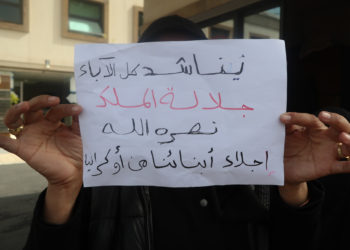 نيناشد كل الآباء
جلالة الملك
نصره الله
إجلاء أبنائنا من أوكرانيا